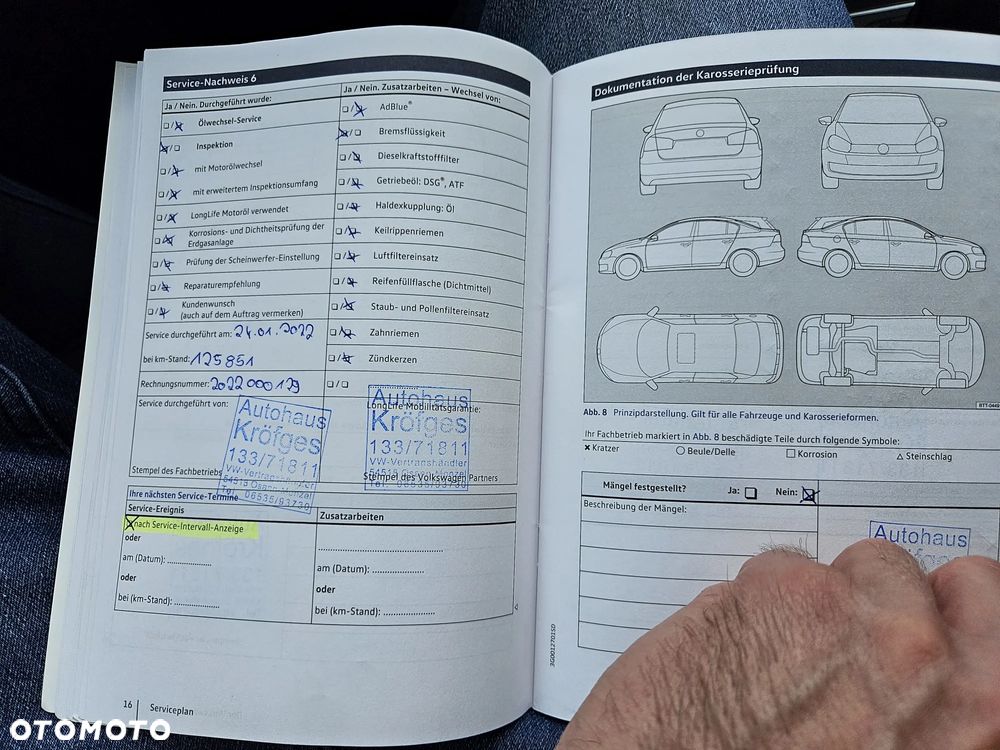 Service-Nachweis 6
Ja / Nein. Durchgeführt wurde:
Ölwechsel-Service
Inspektion
mit Motorölwechsel
mit erweitertem Inspektionsumfang
LongLife Motoröl verwendet
Korrosions- und Dichtheitsprüfung der
Erdgasanlage
Prüfung der Scheinwerfer-Einstellung
Reparaturempfehlung
Kundenwunsch
(auch auf dem Auftrag vermerken)
Service durchgeführt am: 24.01.2022
bei km-Stand: 125851
Rechnungsnummer: 2022000129
Service durchgeführt von:
Autohaus
Kröfges
133/71811
VW-Vertragshändler
54518 Osann-Monzel
Tel. 06535/93730
Stempel des Fachbetriebs
Ja / Nein. Zusatzarbeiten – Wechsel von:
AdBlue®
Bremsflüssigkeit
Dieselkraftstofffilter
Getriebeöl: DSG®, ATF
Haldexkupplung: Öl
Keilrippenriemen
Luftfiltereinsatz
Reifenfüllflasche (Dichtmittel)
Staub- und Pollenfiltereinsatz
Zahnriemen
Zündkerzen
LongLife Mobilitätsgarantie:
Autohaus
Kröfges
133/71811
VW-Vertragshändler
54518 Osann-Monzel
Tel. 06535/93730
Stempel des Volkswagen Partners
Ihre nächsten Service-Termine
Service-Ereignis
nach Service-Intervall-Anzeige
oder
am (Datum): ....................
oder
bei (km-Stand): ....................
Zusatzarbeiten
am (Datum): ....................
oder
bei (km-Stand): ....................
16 Serviceplan
Dokumentation der Karosserieprüfung
BTT-0449
Abb. 8 Prinzipdarstellung. Gilt für alle Fahrzeuge und Karosserieformen.
Ihr Fachbetrieb markiert in Abb. 8 beschädigte Teile durch folgende Symbole:
Kratzer
Beule/Delle
Korrosion
Steinschlag
Mängel festgestellt? Ja: Nein:
Beschreibung der Mängel:
Autohaus
Kröfges
3G0012701SD
OTOMOTO